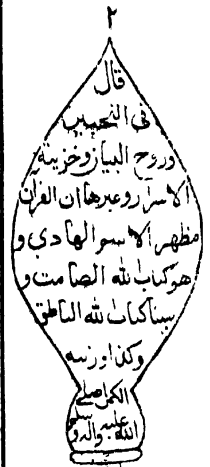 ٢
قال
في التحبير
وروح البيان وخزينة
الاسرار وغيرها ان القرآن
مظهر الاسم الهادي و
هو كتاب الله الصامت و
نبينا كتاب الله الناطق
وكذا ورثته
الكمل صلى
الله عليه وآله وسلم